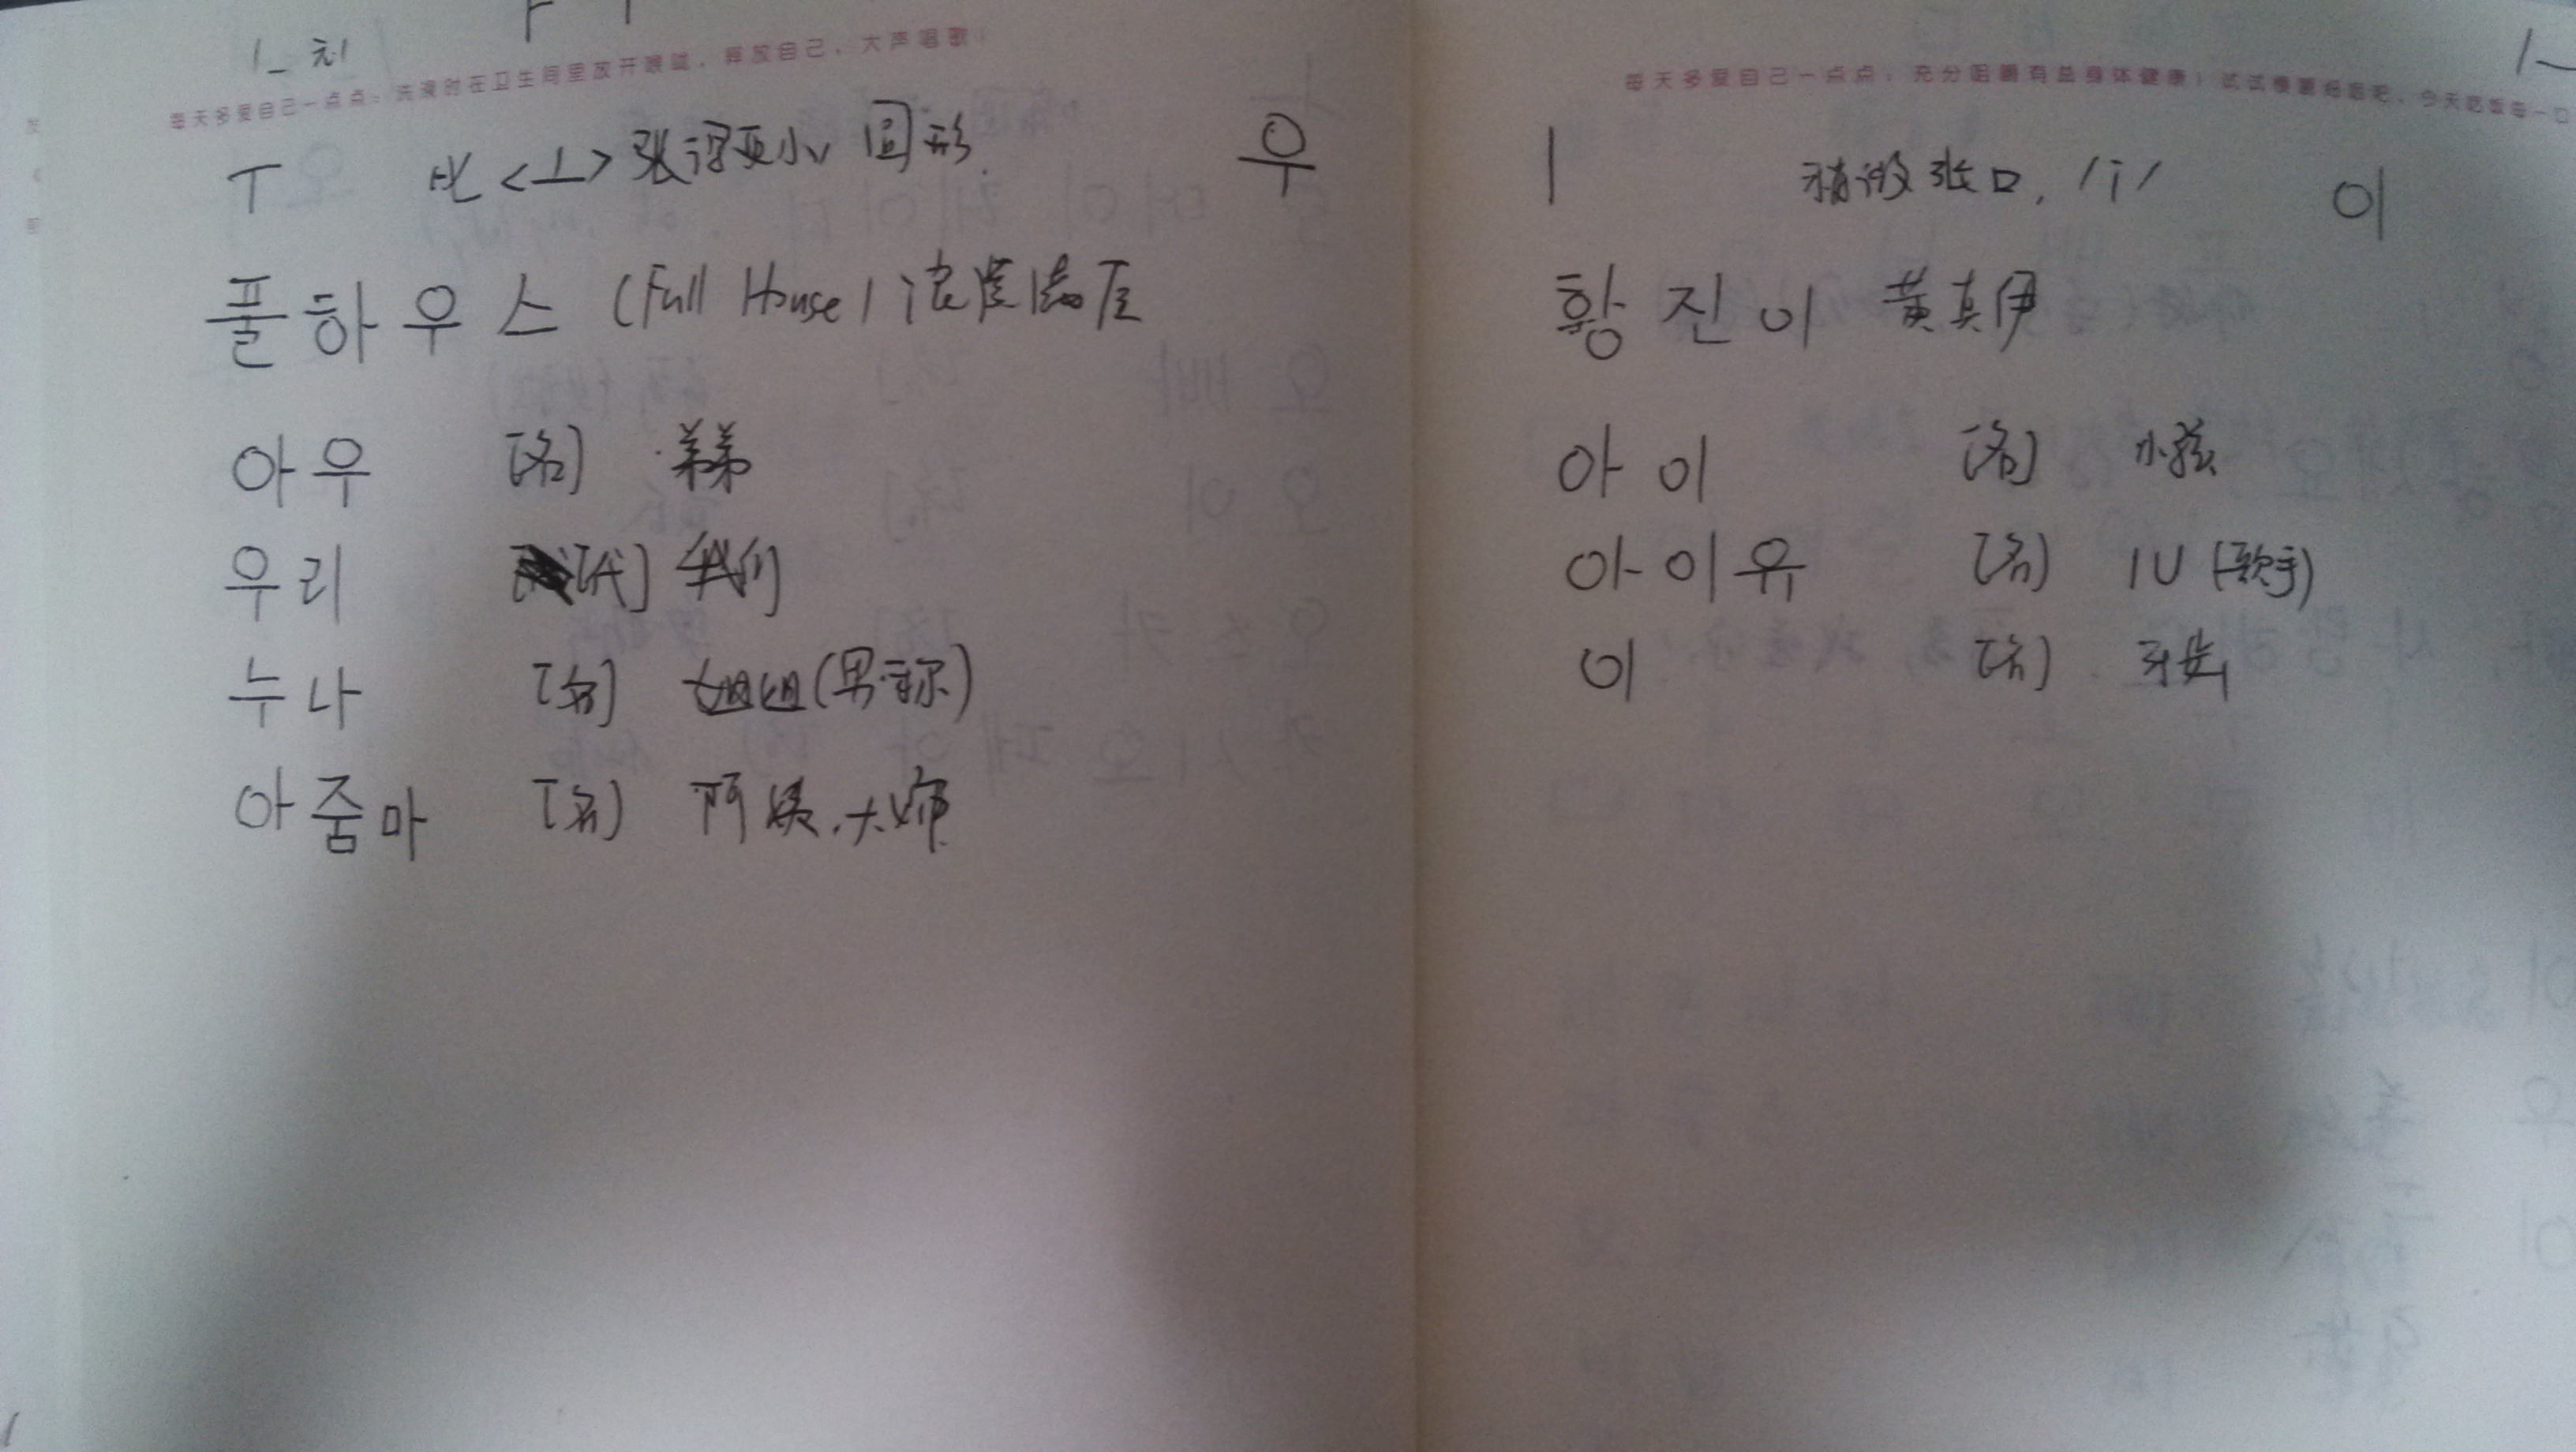 每天多爱自己一点点：洗澡时在卫生间里放开喉咙，释放自己，大声唱歌！
ㅜ 比<ㅗ>张得更小，圆形. 우
풀하우스 (Full House) 浪漫满屋
아우 [名] 弟弟
우리 [代] 我们
누나 [名] 姐姐(男称)
아줌마 [名] 阿姨.大婶
每天多爱自己一点点：充分咀嚼有益身体健康！试试慢嚼细咽吧，今天吃饭每一口
ㅣ 稍微张口, /i/ 이
황진이 黄真伊
아이 [名] 小孩
아이유 [名] IU (歌手)
이 [名] 牙齿